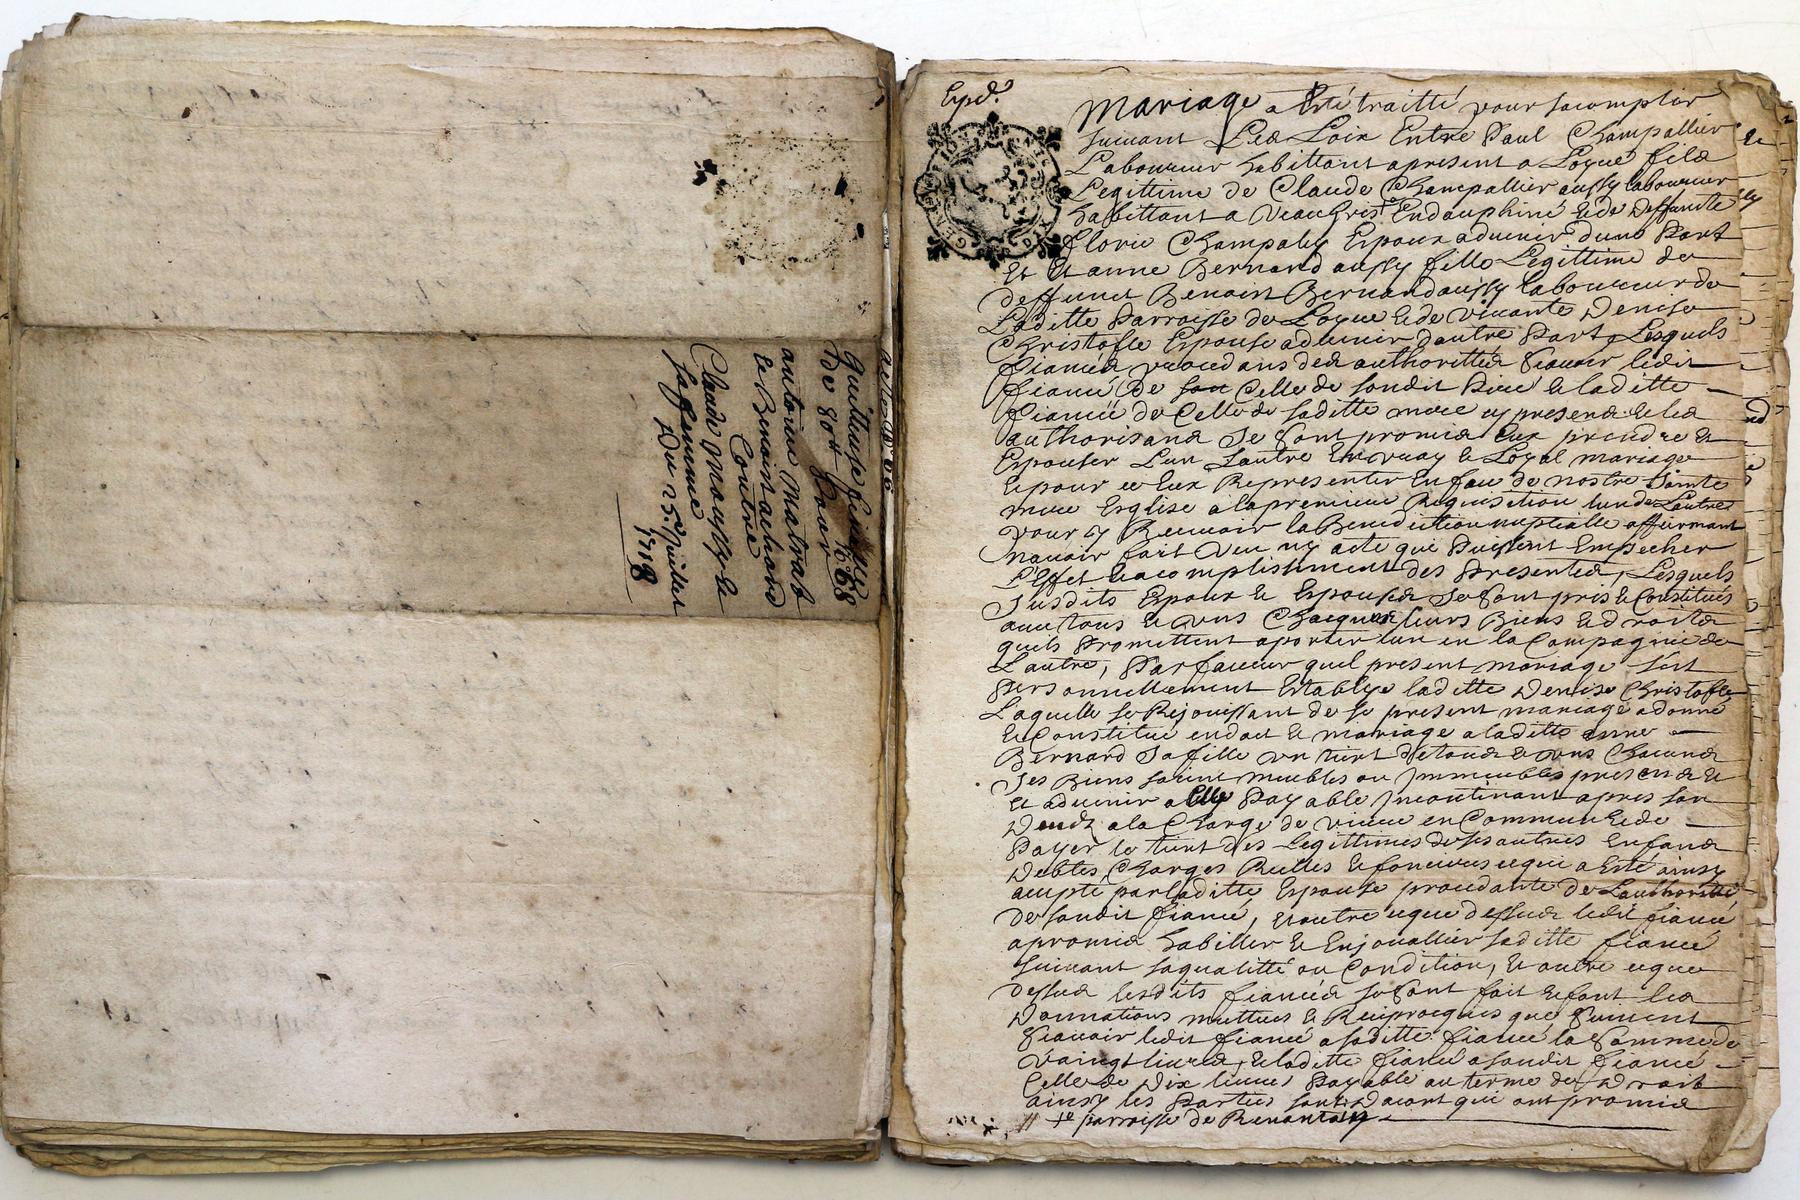 quittance finalle
de 80# pour
antoine matrat
et Benoist achard
Contre
Claude mousty et
sa femme
Du 25e Juillet
1718
Expd.
mariage a Esté traitté pour sacomplir
suivant Les Loix Entre Paul Champallier
Laboureur habittant apresent a Logue fils
Legittime de Claude Champallier aussy laboureur
habittant a Endauphiné et de deffuncte
florie Champaley Espoux advenir dune Part
Et anne Bernard aussy fille Legittime de
deffunct Benoist Bernard aussy laboureur de
Laditte Parroisse de Logue et de vivante Denise
Christofle Espouse advenir dautre Part, Lesquels
fiancés procedans des authorittés scavoir ledit
fiancé de Celle de sondit Pere et laditte
fiancée de Celle de saditte mere cy presens et les
authorisans se sont promis Eux prendre et
Espouser Lun Lautre En vray et Loyal mariage
et pour ce Eux Representer En face de nostre Sainte
mere Esglise alapremiere Requisition lun de Lautre
pour y Recevoir la Benediction nuptialle affirmant
navoir fait veu ny acte qui Puissent Empecher
L'Effet et acomplishment des Presentes, Lesquels
Susdits Espoux et Espouse se sont pris et Constitués
avec tous et uns Chacuns leurs Biens et droits
quils Promettent aporter lun en la Compagnie de
Lautre, Par faveur quel present mariage sest
Personnellement Establye laditte Denise Christofle
Laquelle se Rejouissant de se present mariage a donné
et Constitué en dot et mariage a laditte anne
Bernard Sa fille un tiert de tous et uns Chacuns
Ses Biens soient meubles ou Immeubles presens et
et advenir a Elle Payable Incontinant apres son
Decedz a la Charge de vivre en Commun et de
Payer le tiert des Legittimes de ses autres Enfans
Debtes Charges Reelles et foncieres ce qui a Esté ainsy
acepté par laditte Espouse procedante de Lauthoritté
de sondit fiancé, et outre ce que dessus ledit fiancé
a promis habiller et Enjouallier saditte fiancée
suivant sa qualitté ou Condition, et outre ce que
dessus lesdits fiancés se sont fait et font les
Donnations mutues et Reciproques que suivent
Scavoir ledit fiancé a saditte fiancée la Somme de
vaingt livres, et laditte fiancée a sondit fiancé
Celle de Dix livres Payable au terme de Droit
ainsy les Parties sont Dacort qui ont promis
parroisse de